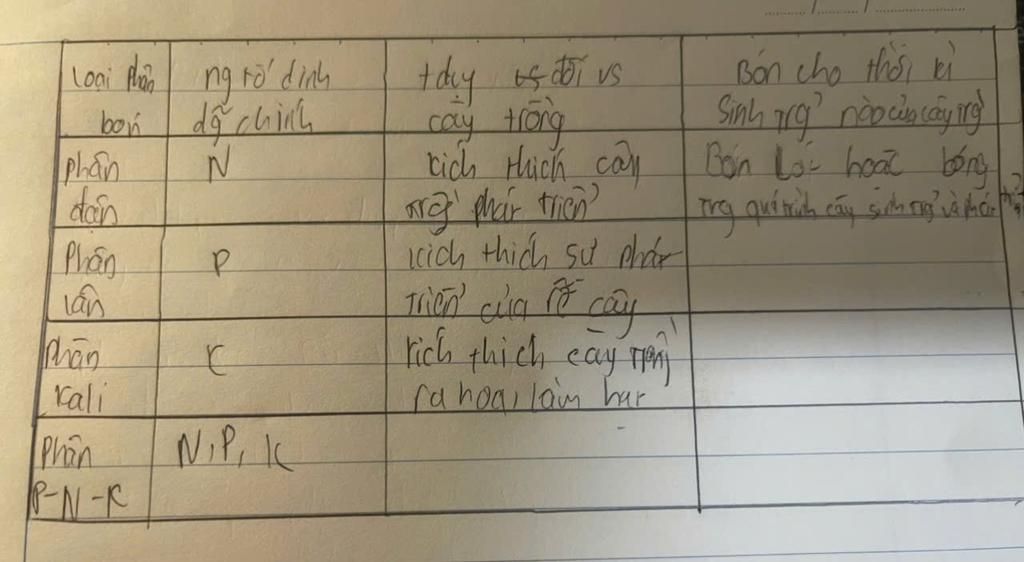 Loại phân
bón
ng tố dinh
dg chính
tduy đối vs
cây trồng
Bón cho thời kì
sinh trg nào của cây trg
Phân
đạm
N
kích thích cây
trg phát triển
Bón lót hoặc bóng
trg quá trình cây sinh trg và phát
Phân
lân
P
kích thích sự phát
triển của rễ cây
Phân
kali
K
kích thích cây trồng
ra hoa, làm hạt
Phân
P-N-K
N, P, K